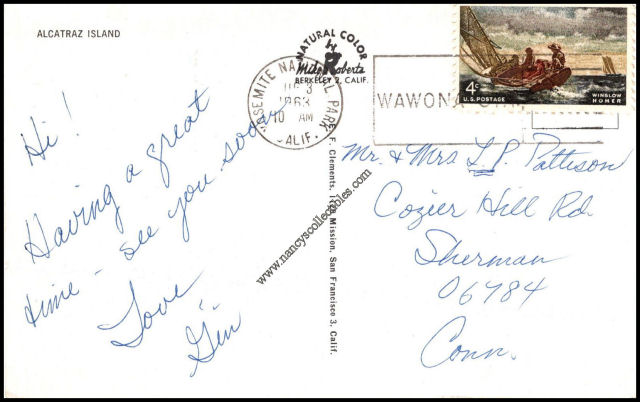 ALCATRAZ ISLAND
NATURAL COLOR
by
Mike Roberts
BERKELEY 2, CALIF.
YOSEMITE NATIONAL PARK
3
1963
10 AM
CALIF.
WAWONA
4¢
U.S. POSTAGE
WINSLOW
HOMER
Hi!
Having a great
time - see you soon
Love
Gin
F. Clements, Mission, San Francisco 3, Calif.
www.nancyscollectibles.com
Mr. & Mrs L. P. Pattison
Cozier Hill Rd.
Sherman
06784
Conn.